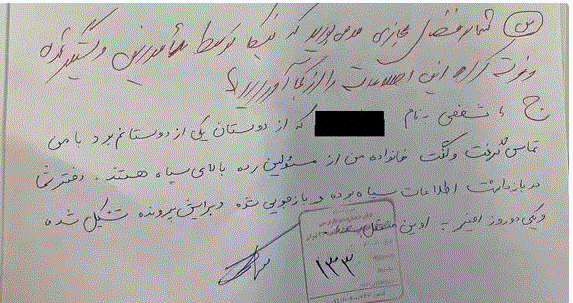 س) شما در فضای مجازی مدعی بودید که نیکا توسط مأمورین دستگیر شده
و نوشته کرده این اطلاعات را از کجا آوردید؟
ج) شخصی بنام که از دوستان یکی از دوستانم بود با من
تماس گرفت و گفت خانواده من از مسئولین رده بالای سپاه هستند. دختر شما
در بازداشت اطلاعات سپاه بوده و بازجویی شده و برایش پرونده تشکیل شده
و یکی دو روز اخیر به اوین منتقل
۱۳۳